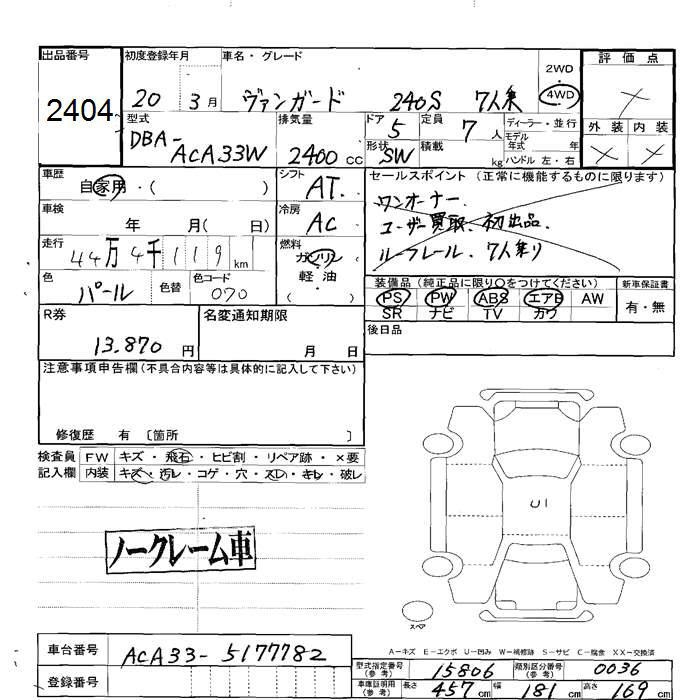 出品番号 初度登録年月 車名・グレード 評価点
2404
20 3月 ヴァンガード 240S 7人乗 2WD
4WD
型式 排気量 ドア 定員 ディーラー・並行 外装 内装
DBA- 5 7人 モデル年式 年
ACA33W 2400 CC 形状 SW 積載 kg ハンドル 左・右
車歴 シフト セールスポイント (正常に機能するものに限ります)
自家用・( ) AT.
ワンオーナー
車検 冷房
年 月( 日) AC ユーザー買取、初出品
走行 燃料
44万4千119km ガソリン ルーフレール、7人乗り
軽・油
( )
色 色替 色コード 装備品(純正品に限り〇をつけてください) 新車保証書
パール 070 PS PW ABS エアB AW 有・無
SR ナビ TV カワ
R券 名変通知期限 後日品
13.870円 月 日
注意事項申告欄(不具合内容等は具体的に記入して下さい)
修復歴 有 〔箇所 〕
検査員 FW キズ・飛石・ヒビ割・リペア跡・×要
記入欄 内装 キズ・汚レ・コゲ・穴・スレ・キレ・破レ
U1
ノークレーム車
スペア
A－キズ E－エクボ U－凹み W－補修跡 S－サビ C－腐食 XX－交換済
車台番号 ACA33-5177782
型式指定番号(参考) 15806 類別区分番号(参考) 0036
登録番号 車庫証明用(参考) 長さ 457cm 幅 181cm 高さ 169cm